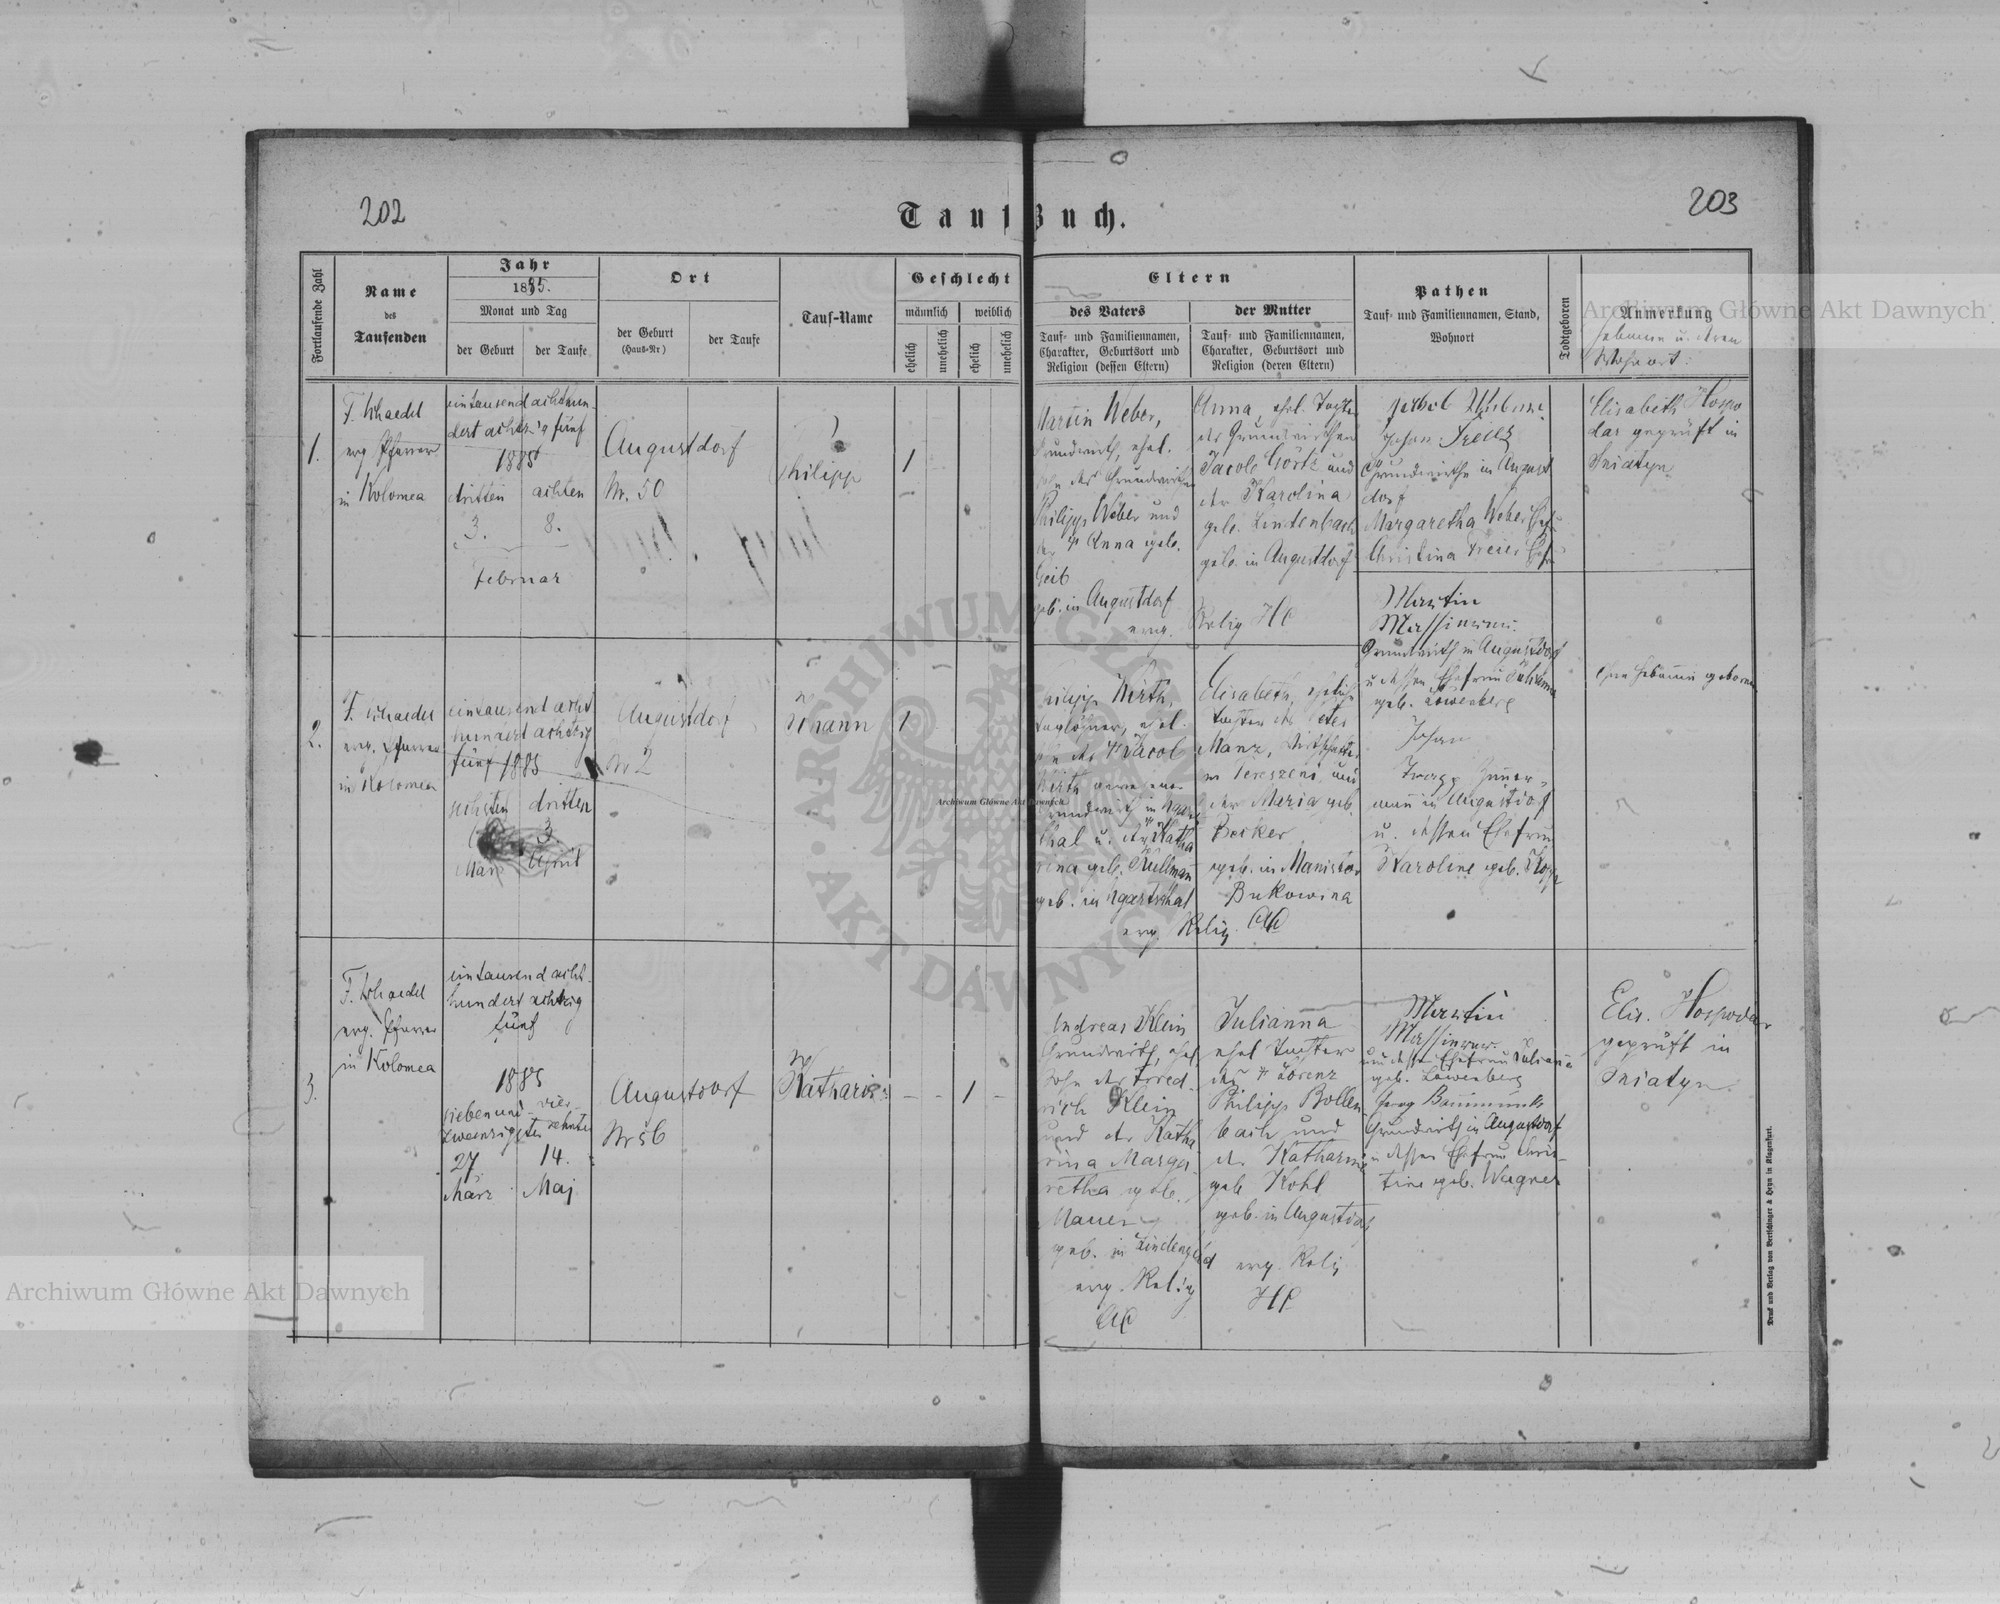 202
203
Tauf-Buch.
Fortlaufende Zahl
Name
des
Taufenden
Jahr
1885.
Monat und Tag
der Geburt
der Taufe
Ort
der Geburt
(Haus-Nr)
der Taufe
Tauf-Name
Geschlecht
männlich
weiblich
ehelich
unehelich
ehelich
unehelich
Eltern
des Vaters
Tauf- und Familiennamen,
Charakter, Geburtsort und
Religion (dessen Eltern)
der Mutter
Tauf- und Familiennamen,
Charakter, Geburtsort und
Religion (deren Eltern)
Pathen
Tauf- und Familiennamen, Stand,
Wohnort
Todtgeboren
Anmerkung
Hebamme u. deren
Wohnort:
1.
F. Schaedel
evg. Pfarrer
in Kolomea
eintausend achthun-
dert achtzig fünf
1885
dritten
achten
3.
8.
Februar
Augustdorf
Nr. 50
Philipp
1
Martin Weber,
Grundwirth, ehel.
Sohn des Grundwirthen
Philipp Weber und
der Anna geb.
Geib
geb. in Augustdorf
evg.
Anna, ehel. Tochter
des Grundwirthen
Jacob Görtz und
der Karolina
geb. Lindenbach
geb. in Augustdorf
Relig HC
Johan
Grundwirthe in August
dorf
Margaretha Weber
Christina
Elisabeth Hospo
dar geprüft in
Sniatyn
2.
F. Schaedel
evg. Pfarrer
in Kolomea
eintausend acht
hundert achtzig
fünf 1885
sechsten
dritten
3
März
April
Augustdorf
Nr 2
Johann
1
Philipp Wirth,
Taglöhner, ehel.
Sohn des Jacob
Wirth
Grundwirth in
thal u. der Katha
rina geb. Kullmann
geb. in Ugartsthal
Elisabeth, eheliche
Tochter des Peter
Manz,
in Tereszeni und
der Maria geb.
Becker
geb. in
Bukowina
evg. Relig. AC
Martin
Massinger
Grundwirth in Augustdorf
u dessen Ehefrau Juliana
geb. Löwenberg
Johan
mann in Augustdorf
u. dessen Ehefrau
Karoline geb.
Ohne Hebamme geboren
3.
F. Schaedel
evg. Pfarrer
in Kolomea
eintausend acht-
hundert achtzig
fünf
1885
siebenund-
vier-
zwanzigsten
zehnten
27
14.
März
Maj
Augustdorf
Nr 56
Katharina
1
Andreas Klein
Grundwirth, ehel.
Sohn des Fried-
rich Klein
und der Katha
rina Marga
retha geb.
Mauer
geb. in Lindenfeld
evg. Relig
AC
Julianna
ehel Tochter
des Lorenz
Philipp Bollen
bach und
der Katharina
geb Kohl
geb. in Augustdorf
evg. Relig
HC
Martin
Massinger
und dessen Ehefrau Julianna
geb. Löwenberg
Grundwirth in Augustdorf
u dessen Ehefrau Chris-
tine geb. Wagner
Elis. Hospodar
geprüft in
Sniatyn.
Druck und Verlag von Bertschinger & Heyn in Klagenfurt.
Archiwum Główne Akt Dawnych
Archiwum Główne Akt Dawnych
Archiwum Główne Akt Dawnych
ARCHIWUM GŁÓWNE
AKT DAWNYCH